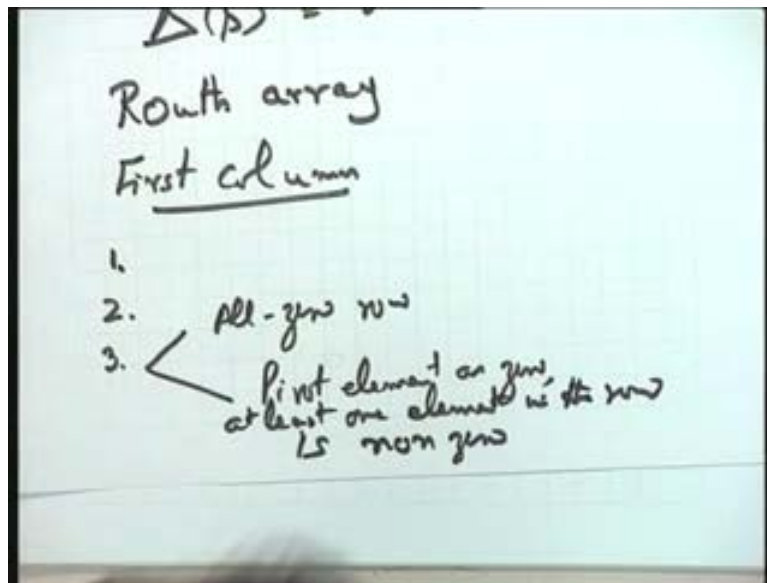 Δ(s) =
Routh array
First column
1.
2.
3. All-zero row
Pivot element as zero,
at least one element in the row
is non zero